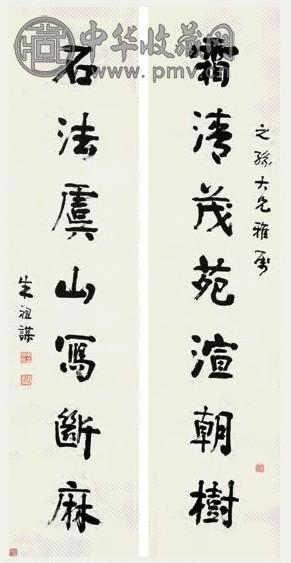 中华收藏网
www.pmv.
之孫大兄雅屬
霜清茂苑渲朝樹
石法虞山寫斷麻
朱祖謀